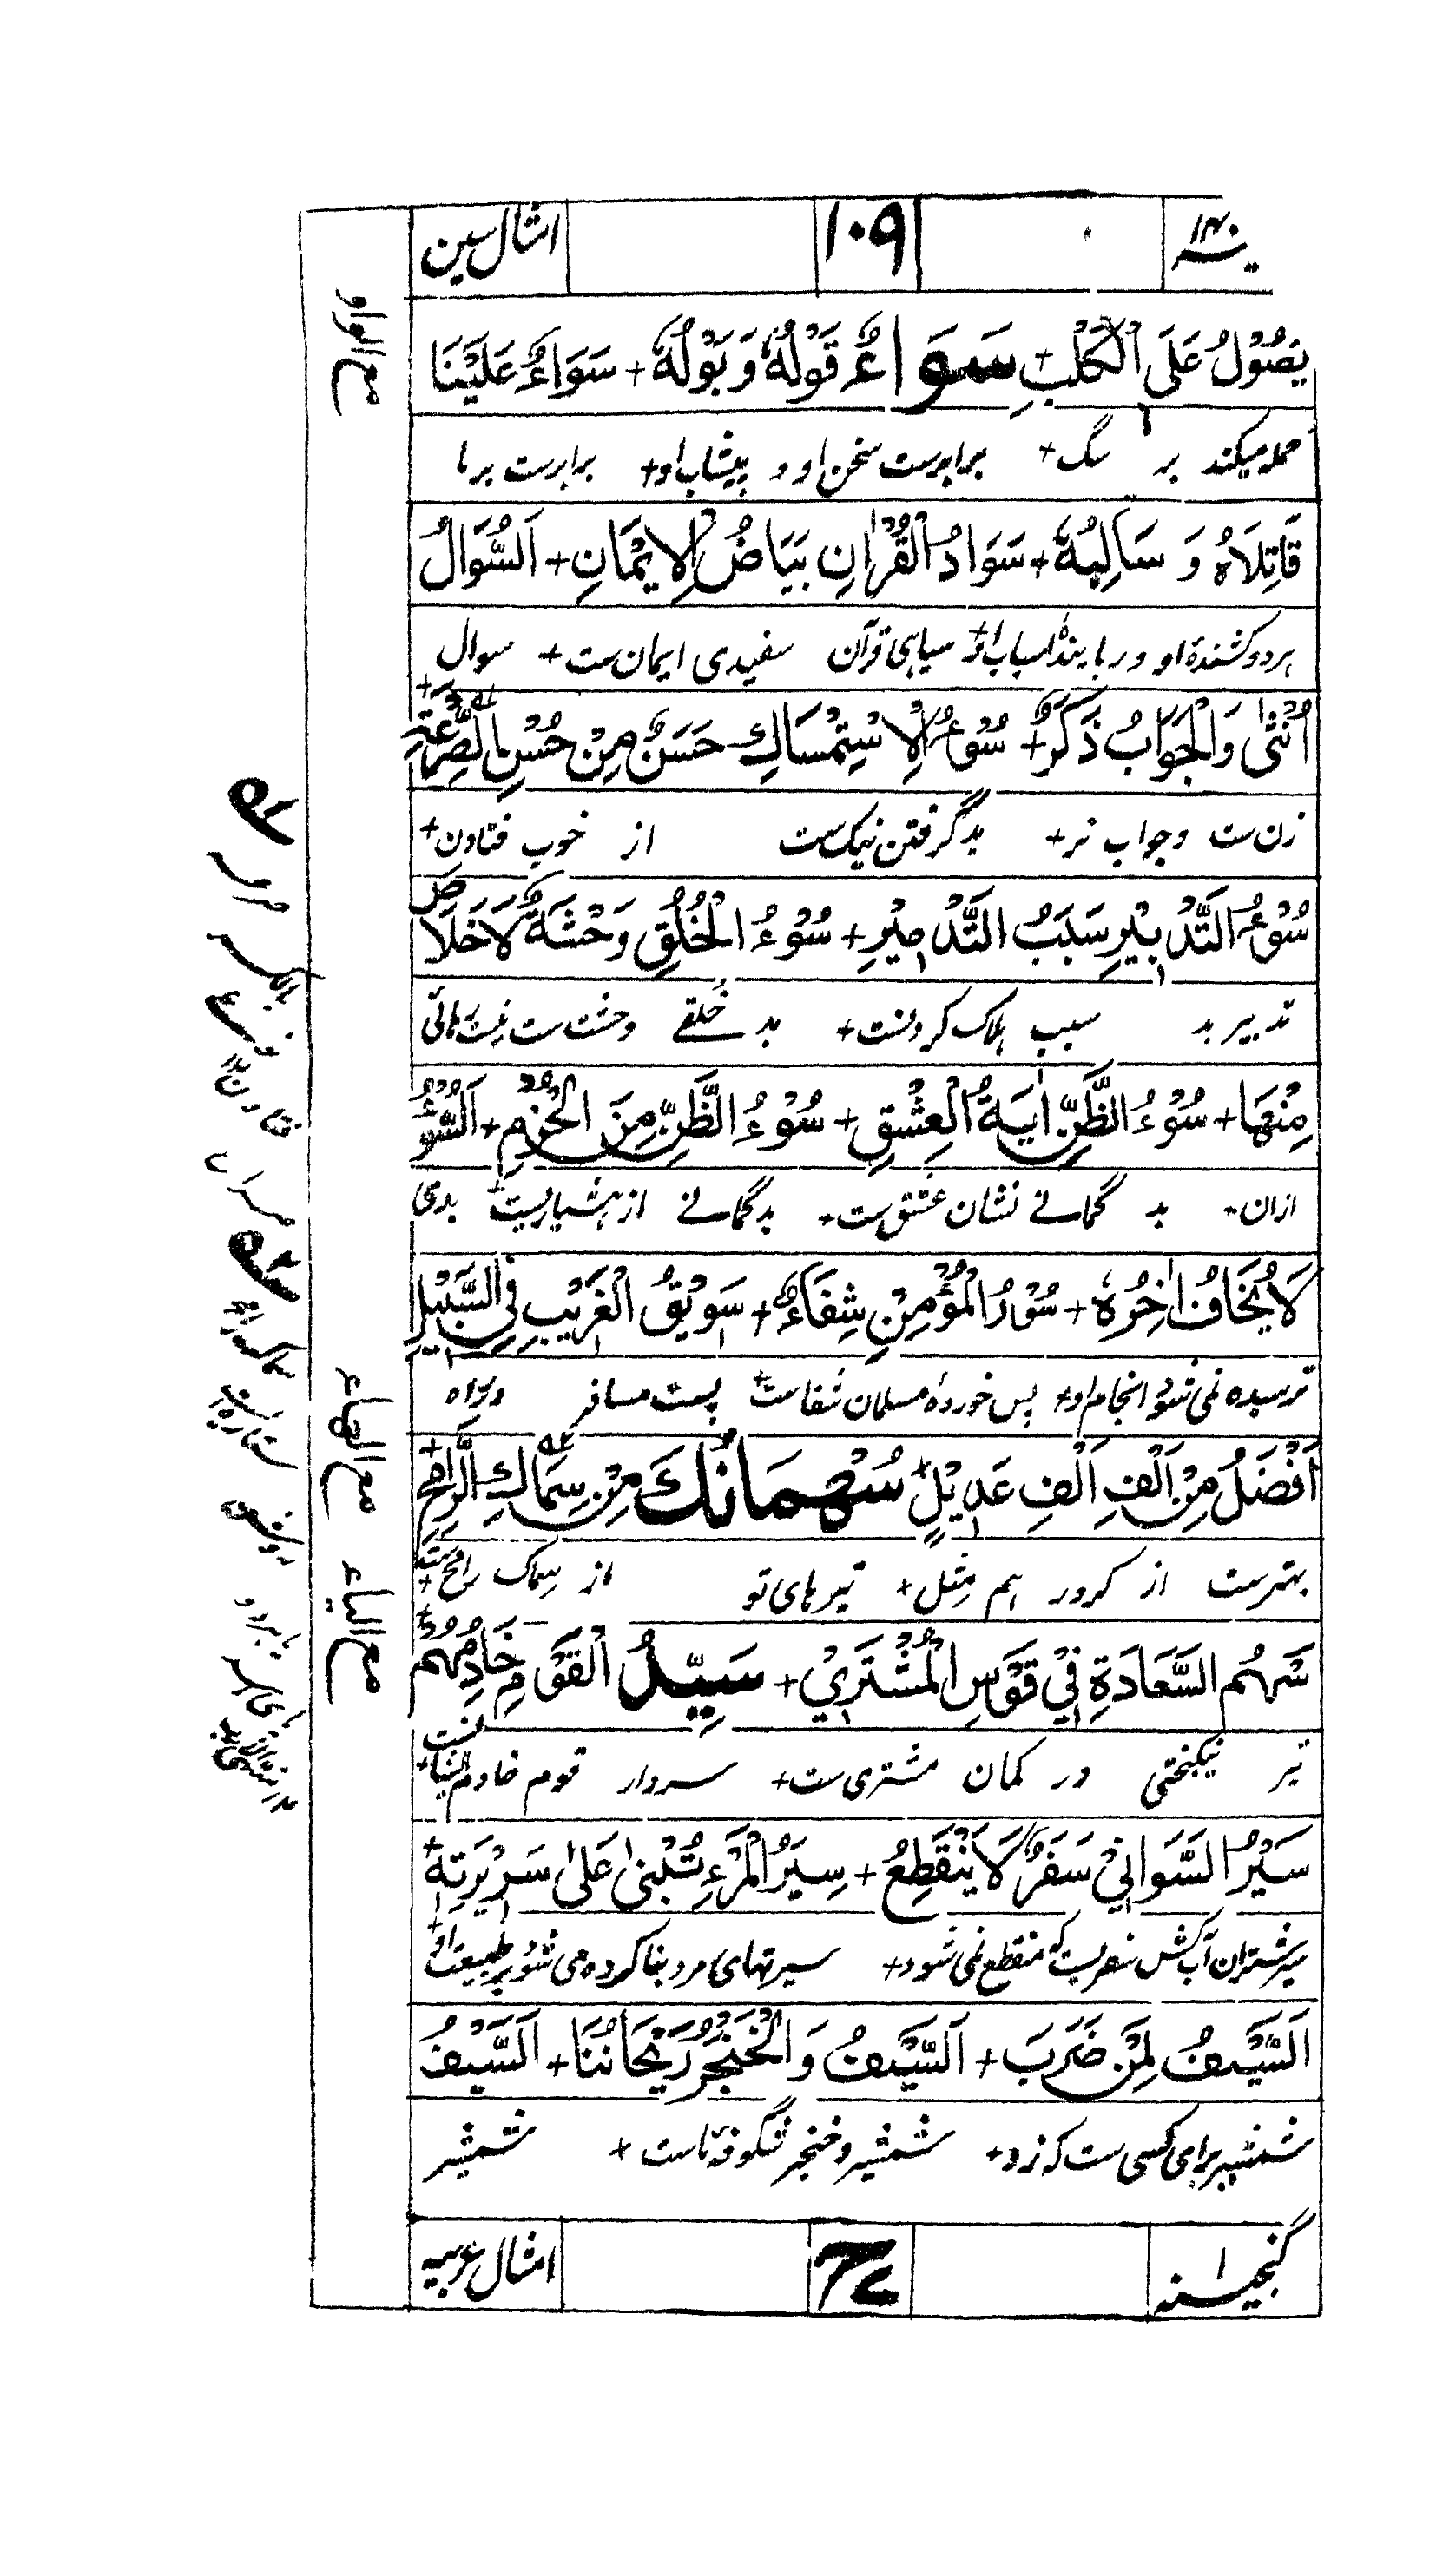 ۱۰۹
امثال سین
يَصُوْلُ عَلَى الْكَلْبِ + سَوَاءٌ قَوْلُهٗ وَ بَوْلُهٗ + سَوَاءٌ عَلَيْنَا
حمله میکند بر سگ + برابرست سخن او و پیشاب او + برابرست بر ما
قَاتِلَاهُ وَ سَالِبُهٗ + سَوَادُ الْقُرْاٰنِ بَيَاضُ الْاِيْمَانِ + اَلسُّوَالُ
هر دو کشندهٔ او و ربایندهٔ اسباب او + سیاهی قرآن سفیدی ایمان ست + سوال
اُنْثٰى وَالْجَوَابُ ذَكَرٌ + سُوْءُ الْاِسْتِمْسَاكِ حَسَنٌ مِنْ حُسْنِ الصِّرْعَةِ +
زن ست و جواب نر + بد گرفتن نیک ست از خوب فتادن +
سُوْءُ التَّدْبِيْرِ سَبَبُ التَّدْمِيْرِ + سُوْءُ الْخُلُقِ وَحْشَةٌ لَا خَلَاصَ
تدبیر بد سبب هلاک کردنست + بد خُلقے وحشت ست نیست رهائی
مِنْهَا + سُوْءُ الظَّنِّ اٰيَةُ الْعِشْقِ + سُوْءُ الظَّنِّ مِنَ الْحَزْمِ + اَلسُّوْءُ
ازان - بد گمانے نشان عشق ست - بد گمانے از هشیاریست + بدی
لَا يُخَافُ اٰخِرُهٗ + سُوْرُ الْمُؤْمِنِ شِفَاءٌ + سَوِيْقُ الْغَرِيْبِ فِي السَّبِيْلِ
ترسیده نمی شود انجام او + پس خوردهٔ مسلمان شفاست + پست مسافر در راه
اَفْضَلُ مِنْ اَلْفِ اَلْفِ عَدِيْلٍ + سُهْمَانُكَ مِنْ سِمَاكِ الرَّامِحِ +
بهترست از کرور هم مثل + تیرهای تو از سماک رامح ست +
سَهْمُ السَّعَادَةِ فِيْ قَوْسِ الْمُشْتَرِيْ + سَيِّدُ الْقَوْمِ خَادِمُهُمْ +
تیر نیکبختی در کمان مشتری ست + سردار قوم خادم ایشانست +
سَيْرُ السَّوَانِيْ سَفَرٌ لَا يَنْقَطِعُ + سِيَرُ الْمَرْءِ تُبْنٰى عَلٰى سَرِيْرَتِهٖ +
سیر شتران آب کش سفریست که منقطع نمی شود + سیرتهای مرد بنا کرده می شود بر طبیعت او +
اَلسَّيْفُ لِمَنْ ضَرَبَ + اَلسَّيْفُ وَالْخَنْجَرُ رَيْحَانُنَا + اَلسَّيْفُ
شمشیر برای کسی ست که زد + شمشیر و خنجر شگوفهٔ ماست + شمشیر
گنجینه ۱
امثال عربیه
مع الواو
مع الهاء
مع الیاء